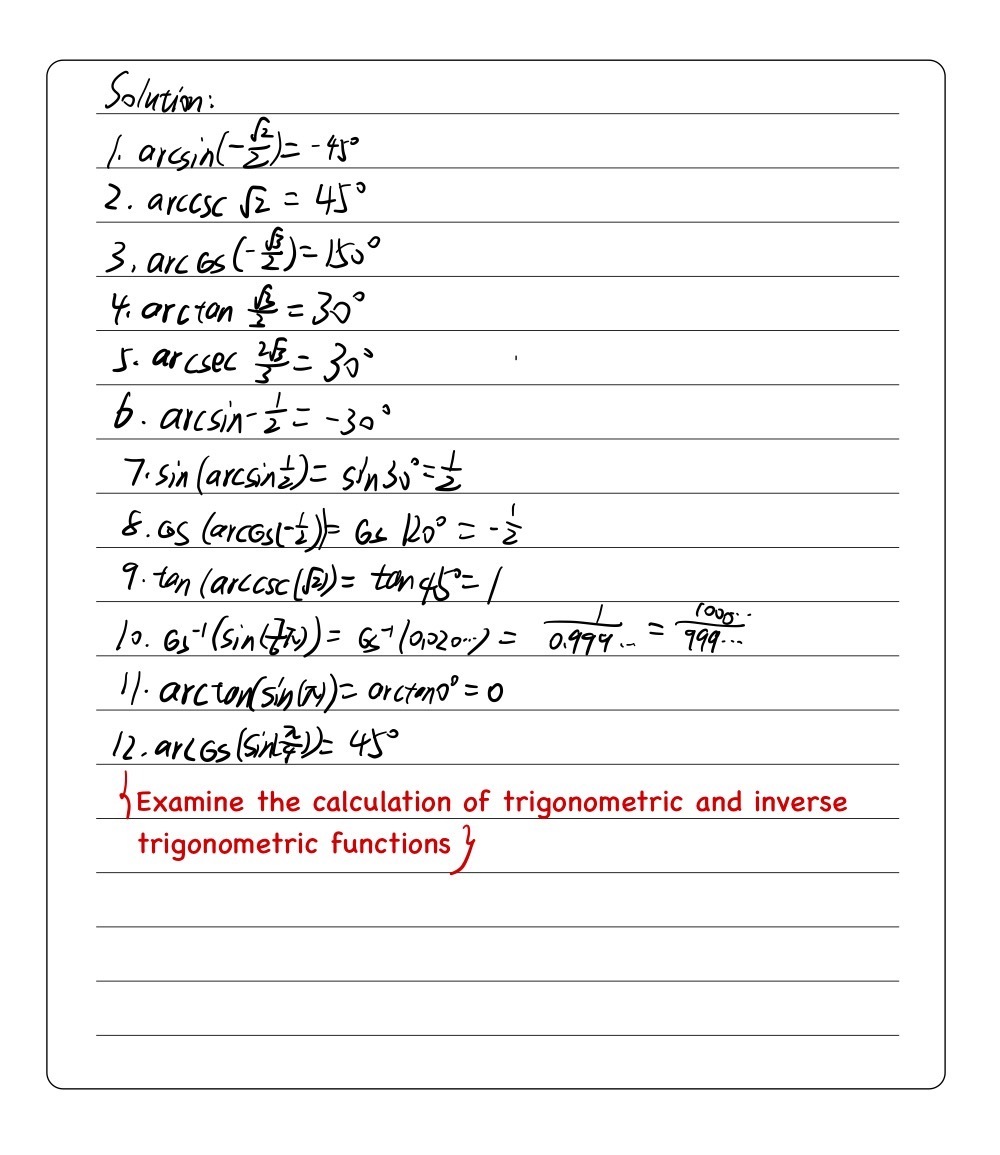 Solution:
1. arcsin(-√2/2)= -45°
2. arccsc √2 = 45°
3. arccos(-√3/2)=150°
4. arctan √3/2 = 30°
5. arcsec 2√3/3 = 30°
6. arcsin-1/2 = -30°
7. sin(arcsin1/2)= sin30°=1/2
8. cos (arccos(-1/2))= cos 120° = -1/2
9. tan (arccsc(√2))= tan45°=1
10. cos⁻¹(sin(7/6π))= cos⁻¹(0.020...) = 1/0.999... = 1000.../999...
11. arctan(sin(π))= arctan0°=0
12. arccos(sin(π/4))= 45°
{Examine the calculation of trigonometric and inverse
trigonometric functions}